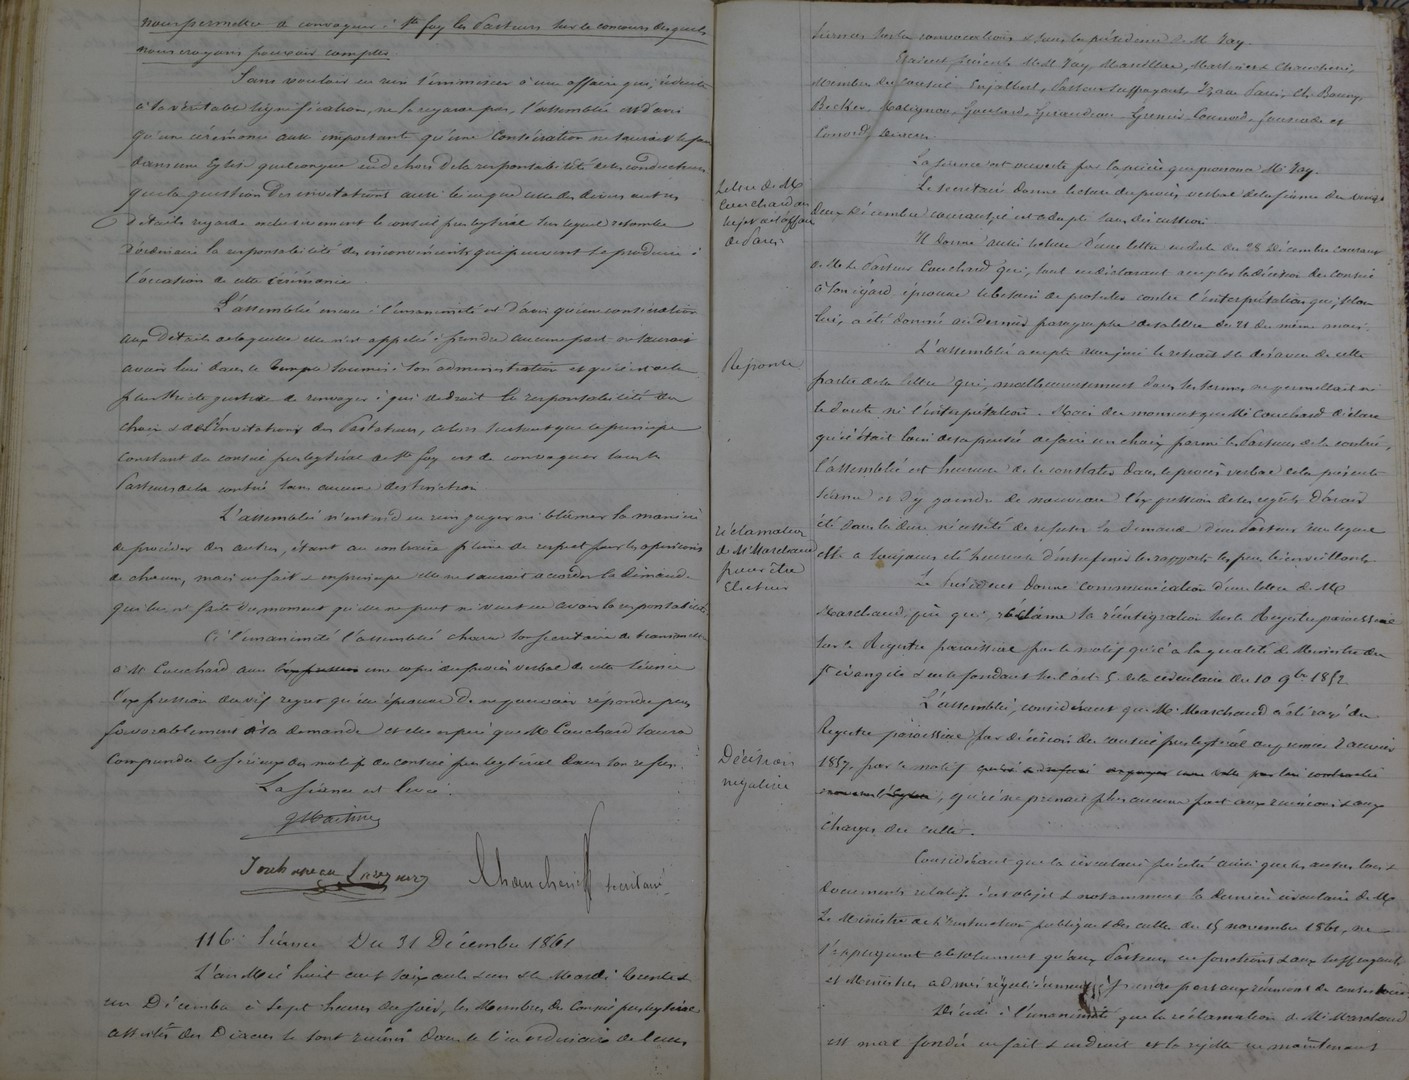 nous permettre de convoquer à Ste foy les Pasteurs sur le concours desquels
nous croyons pouvoir compter.
Sans vouloir en rien s'immiscer à une affaire qui, réduite
à sa véritable signification, ne le regarde pas, l'assemblée est d'avis
qu'une cérémonie aussi importante qu'une Consécration ne saurait se faire
dans une Eglise quelconque en dehors de la responsabilité de ses conducteurs
que la question des invitations aussi bien que celle des divers autres
détails regarde exclusivement le conseil presbytéral sur lequel retombe
d'ordinaire la responsabilité des inconvénients qui peuvent se produire à
l'occasion de cette cérémonie.
L'assemblée encore à l'unanimité est d'avis qu'une consécration
aux détails de laquelle elle n'est appelée à prendre aucune part ne saurait
avoir lieu dans le Temple soumis à son administration et qu'il est de la
plus stricte justice de renvoyer à qui de droit la responsabilité du
choix & de l'invitation des Pasteurs, alors surtout que le principe
constant du conseil presbytéral de Ste foy est de convoquer tous les
Pasteurs de la contrée sans aucune distinction
L'assemblée n'entend en rien juger ni blâmer la manière
de procéder des autres, étant au contraire pleine de respect pour les opinions
de chacun, mais en fait & en principe elle ne saurait accorder la demande
qui lui est faite du moment qu'elle ne peut ni veut en avoir la responsabilité.
A l'unanimité l'assemblée charge son secrétaire de transmettre
à Mr Couchard avec une copie du procès verbal de cette séance
l'expression du vif regret qu'elle éprouve de ne pouvoir répondre plus
favorablement à sa demande et elle espère que Mr Couchard saura
comprendre le sérieux des motifs du conseil presbytéral dans son refus.
La séance est levée.
Chaucherie secrétaire
116e Séance Du 31 Décembre 1861
L'an Mil huit cent soixante & un & le Mardi trente &
un Décembre à sept heures du soir, les Membres du Conseil presbytéral
assistés des Diacres se sont réunis dans le lieu ordinaire de leurs
séances sur la convocation & sous la présidence de Mr Jay.
Etaient présents MM Jay, Martineau & Chaucherie,
Membres du Conseil. Enjalbert, Pasteur suffragant,
Becker,
Diacres.
La séance est ouverte par la prière que prononce Mr Jay.
Le secrétaire donne lecture du procès verbal de la séance du vingt
deux Décembre courant qui est adopté sans discussion.
Lettre de Mr
Couchard au
sujet de l'affaire
Il donne aussi lecture d'une lettre en date du 28 Décembre courant
de Mr le Pasteur Couchard qui, tout en déclarant accepter la décision du Conseil
à son égard éprouve le besoin de protester contre l'interprétation qui, selon
lui, a été donnée au dernier paragraphe de sa lettre du 21 du même mois.
Réponse
L'assemblée accepte avec joie le retrait & le désaveu de cette
partie de la lettre qui, malheureusement dans les termes ne permettait ni
le doute ni l'interprétation. Mais du moment que Mr Couchard déclare
qu'il était loin de sa pensée de faire un choix parmi les Pasteurs de la contrée,
l'assemblée est heureuse de le constater dans le procès verbal de la présente
séance et d'y joindre de nouveau l'expression de ses regrets d'avoir
été dans la dure nécessité de refuser la demande d'un Pasteur avec lequel
elle a toujours été heureuse d'entretenir les rapports les plus bienveillants
réclamation
de Mr Marchand
pour être
Electeur
Le Président donne communication d'une lettre de Mr
Marchand père qui réclame sa réintégration sur le Registre paroissial
sur le Registre paroissial par le motif qu'il a la qualité de Ministre du
St Evangile & en se fondant sur l'art. 5 de la circulaire du 10 9bre 1852
Décision
négative
L'assemblée, considérant que Mr Marchand a été rayé du
Registre paroissial par décision du conseil presbytéral
1857, par le motif
, qu'il ne prenait plus aucune part aux réunions & aux
charges du culte.
Considérant que la circulaire précitée ainsi que les autres lois &
documents relatifs à cet objet & notamment la dernière circulaire de Mr
Le Ministre de l'Instruction publique & des cultes du 15 novembre 1861, ne
s'appliquent absolument qu'aux Pasteurs en fonctions & aux suffragants
et Ministres admis régulièrement à prendre part aux réunions du
Décide à l'unanimité que la réclamation de Mr Marchand
est mal fondée en fait & en droit et la rejette en maintenant